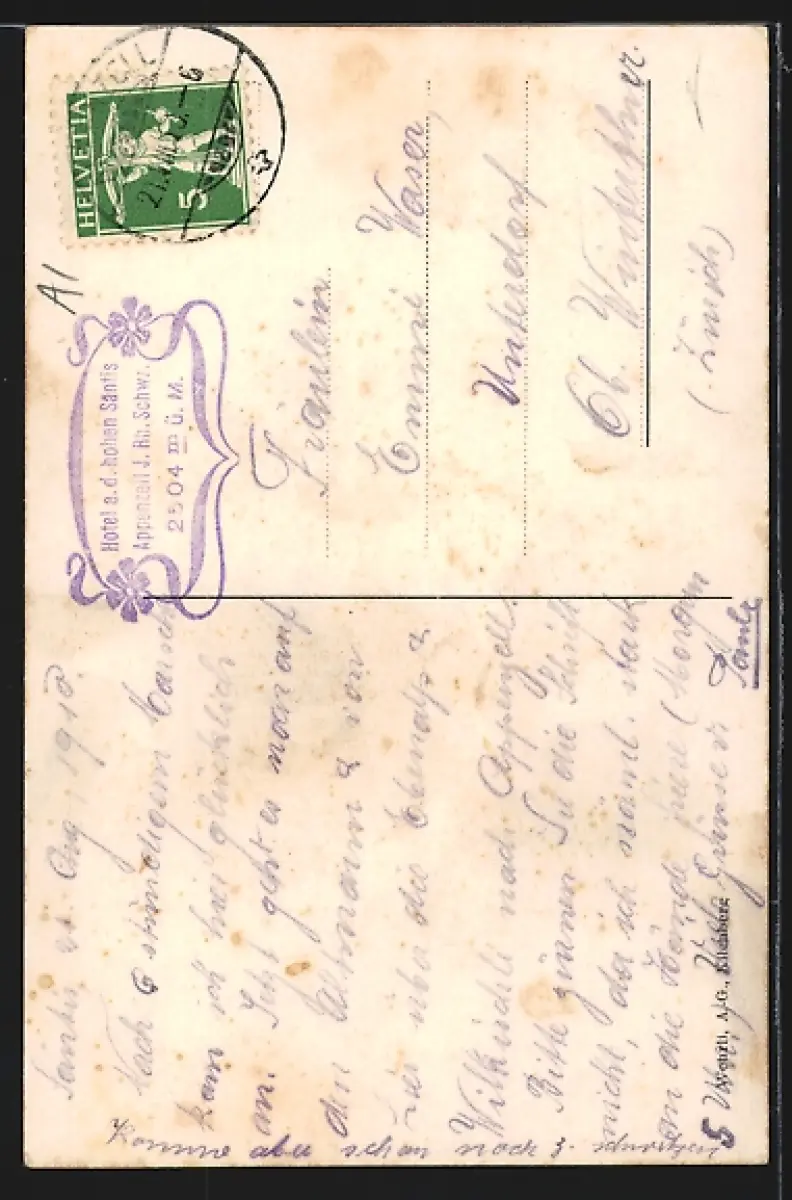 HELVETIA
5
A1
Hotel a.d. hohen Säntis
Appenzell J. Rh. Schwz.
2504 m ü. M.
Fräulein
Emmi Waser,
Unterdorf
Ob. Winterthur.
(Zürich)
Säntis 21. Aug. 1913.
Nach 6 stündigem Marsch
kam ich hier glücklich
an. Jetzt geht es noch auf
den Altmann & von
da über die Ebenalp &
Wildkirchli nach Appenzell.
Bitte zürnen Sie die Schrift
nicht, da ich nämt. stark
an die Hände friere (Morgen
5 Uhr) Viele Grüsse v.
Paula
Komme aber schon noch z. schwitzen
Wehrli, A.-G., Kilchberg